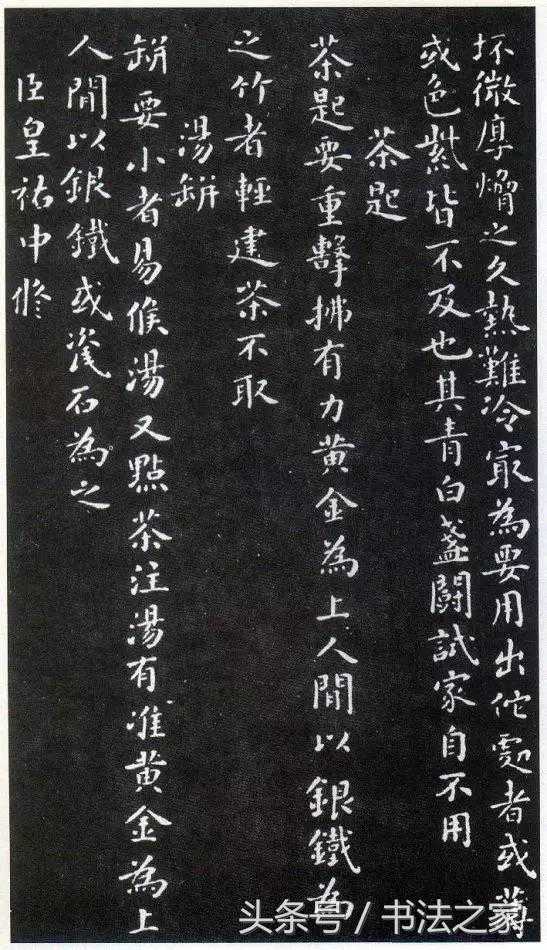 坯微厚熁之久熱難冷㝡為要用出佗處者或薄
或色紫皆不及也其青白盞鬭試家自不用
茶匙
茶匙要重擊拂有力黃金為上人間以銀鐵為
之竹者輕建茶不取
湯缾
缾要小者易候湯又點茶注湯有准黃金為上
人間以銀鐵或瓷石為之
臣皇祐中修
头条号 / 书法之家